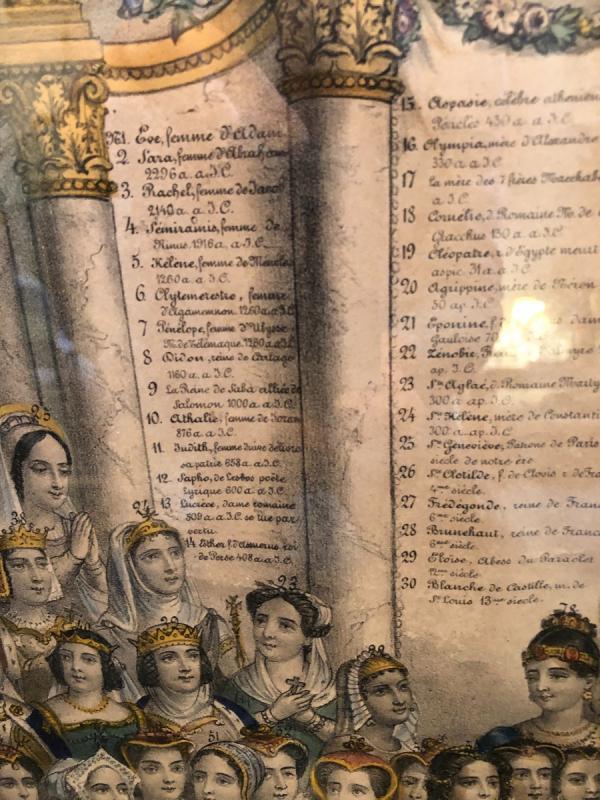 №1. Eve, femme d'Adam
2. Sara, femme d'Abraham
2296 a. a. J.C.
3. Rachel, femme de Jacob
2140 a. J.C.
4. Sémiramis, femme de
Ninus. 1916 a. a J.C.
5. Hélène, femme de Menelas
1260 a. J.C.
6 Clytemerestre, femme
d'Agamemnon. 1260 a. a J.C
7 Pénélope, femme d'Ulysse
M. de Télémaque. 1260 a. a J.C
8 Didon, reine de Cartage
1160 a. a J.C.
9 La Reine de Saba alliée de
Salomon 1000 a. a. J.C.
10. Athalie, femme de Joram
876 a. a J.C.
11. Judith, femme Juive délivra
sa patrie 658 a. a J.C.
12 Sapho, de Lesbos poëte
Lyrique 600 a. a J.C
13 Lucrèce, dame romaine
509 a. a J.C. se tue par
vertu.
14 Esther f. d'Assuerus, roi
de Perse 408 a. a J.C.
15. Aspasie, célèbre athénien
Pericles 430 a. a J.C
16. Olympia, mère d'Alexandre
330 a. a J.C
17 La mère des 7 frères Maccha
a J.C
18 Cornelie, d. Romaine M. de
Gracchus 130 a. a J.C.
19 Cléopatre, r. d'Egypte meurt
aspic. 31 a. a J.C.
20 Agrippine, mère de Néron
50 ap. J.C.
21 Eponine, f. dam
Gauloise 70
22 Zénobie,
ap. J.C.
23 Ste Aglaé, d. Romaine Marty
300 a ap. J.C.
24 Ste Hélène, mère de Constanti
300 a. ap. J.C.
25 Ste Geneviève, Patrone de Paris
siècle de notre ère
26 Ste Clotilde, f. de Clovis r. de Fra
siècle.
27 Frédégonde, reine de Fran
6me siècle.
28 Brunehaut, reine de Franc
6me siècle
29 Eloise, Abesse du Paraclet
12me siècle
30 Blanche de Castille, m. de
St. Louis 13me siècle.
25
24
23
28
51
78